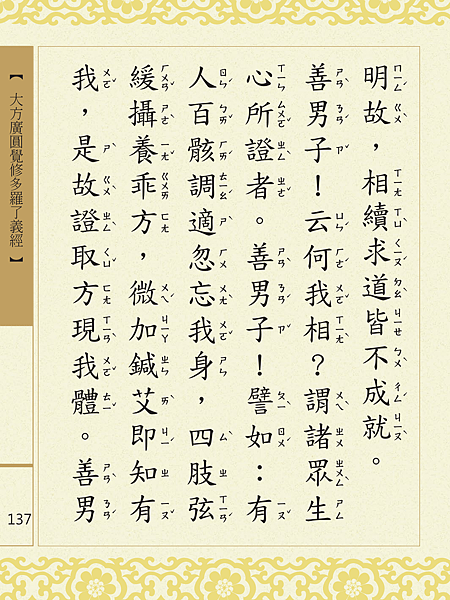 明故，相續求道皆不成就。
善男子！云何我相？謂諸眾生
心所證者。善男子！譬如：有
人百骸調適忽忘我身，四肢弦
緩攝養乖方，微加鍼艾即知有
我，是故證取方現我體。善男
【大方廣圓覺修多羅了義經】
137